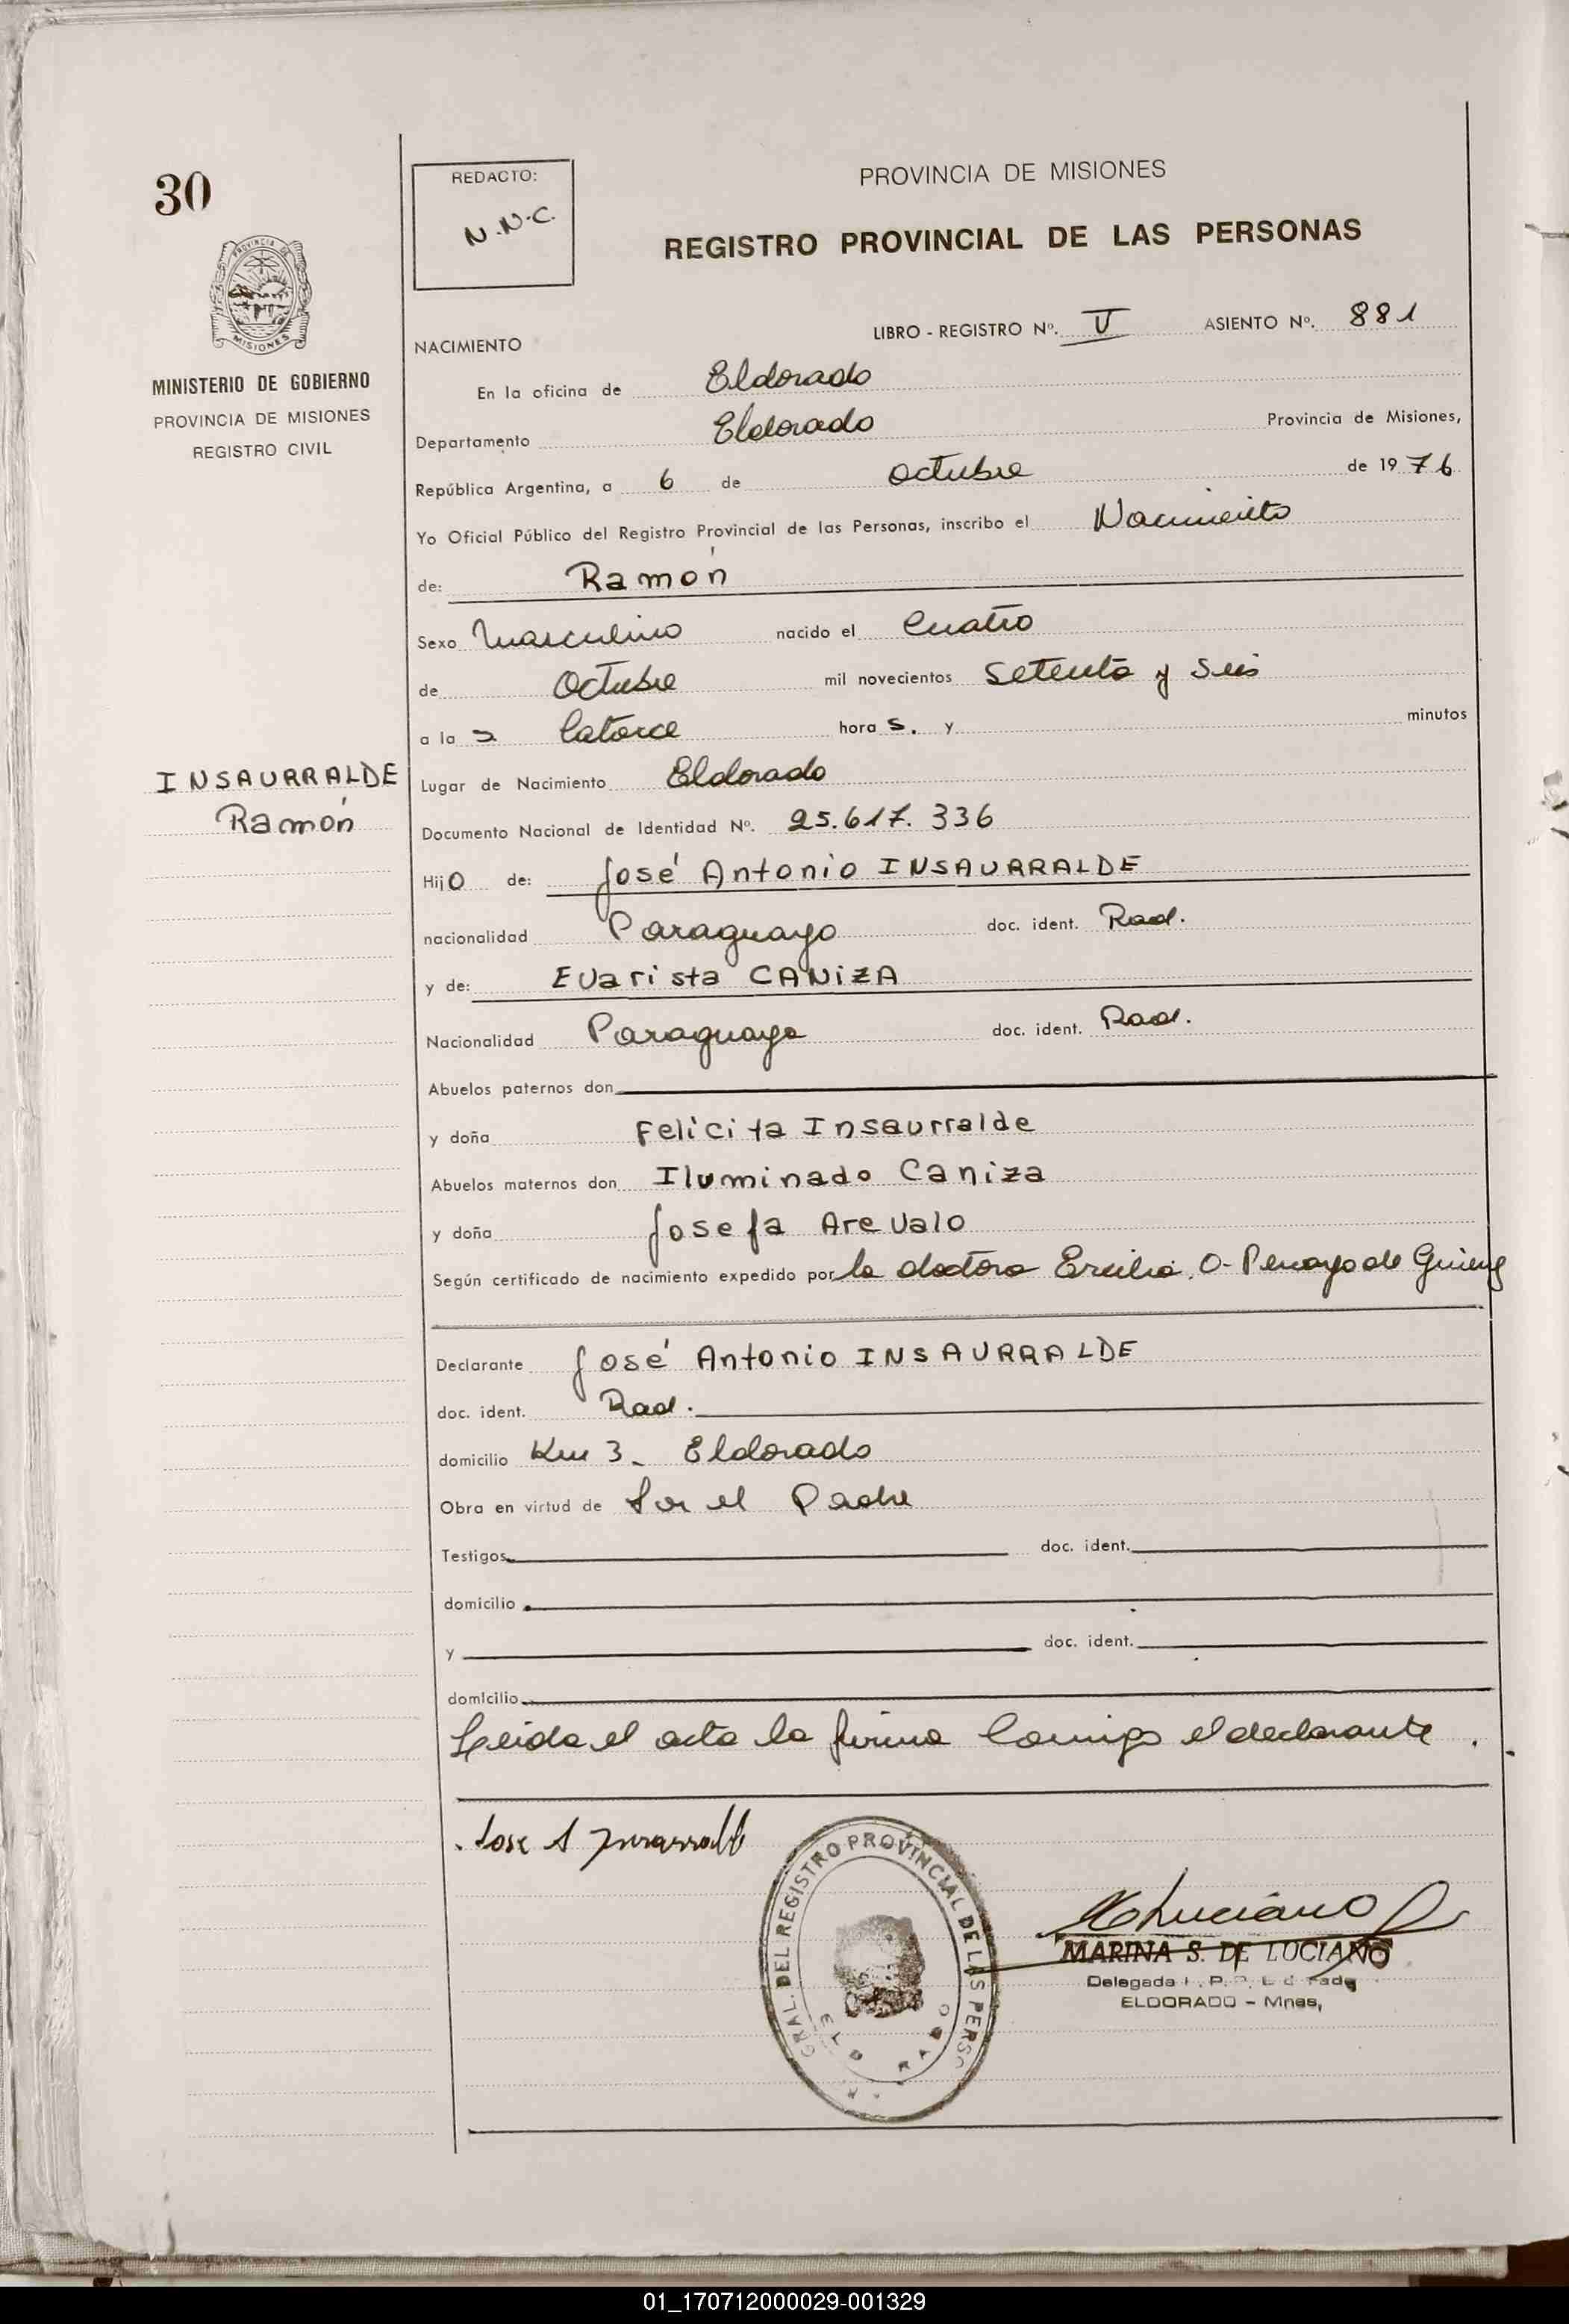 30
REDACTO:
N.N.C.
PROVINCIA DE MISIONES
REGISTRO PROVINCIAL DE LAS PERSONAS
PROVINCIA DE
MISIONES
MINISTERIO DE GOBIERNO
PROVINCIA DE MISIONES
REGISTRO CIVIL
LIBRO - REGISTRO Nº. V ASIENTO Nº. 881
NACIMIENTO
En la oficina de Eldorado
Departamento Eldorado Provincia de Misiones,
República Argentina, a 6 de Octubre de 1976
Yo Oficial Público del Registro Provincial de las Personas, inscribo el Nacimiento
de: Ramón
Sexo Masculino nacido el Cuatro
de Octubre mil novecientos Setenta y Seis
a la s Catorce hora s. y minutos
INSAURRALDE
Ramón
Lugar de Nacimiento Eldorado
Documento Nacional de Identidad Nº. 25.617.336
Hijo de: José Antonio INSAURRALDE
nacionalidad Paraguayo doc. ident. Rad.
y de: Evarista CANiZA
Nacionalidad Paraguaya doc. ident. Rad.
Abuelos paternos don
y doña Felicita Insaurralde
Abuelos maternos don Iluminado Caniza
y doña Josefa Arevalo
Según certificado de nacimiento expedido por la doctora Ercilia O- Penayo de
Declarante José Antonio INSAURRALDE
doc. ident. Rad.
domicilio Km 3 - Eldorado
Obra en virtud de Ser el Padre
Testigos doc. ident.
domicilio
y doc. ident.
domicilio
Leida el acta la firma Conmigo el declarante.
Jose A Insarralde
GRAL. DEL REGISTRO PROVINCIAL DE LAS PERSO
MARINA S. DE LUCIANO
Delegada
ELDORADO - Mnes,
01_170712000029-001329